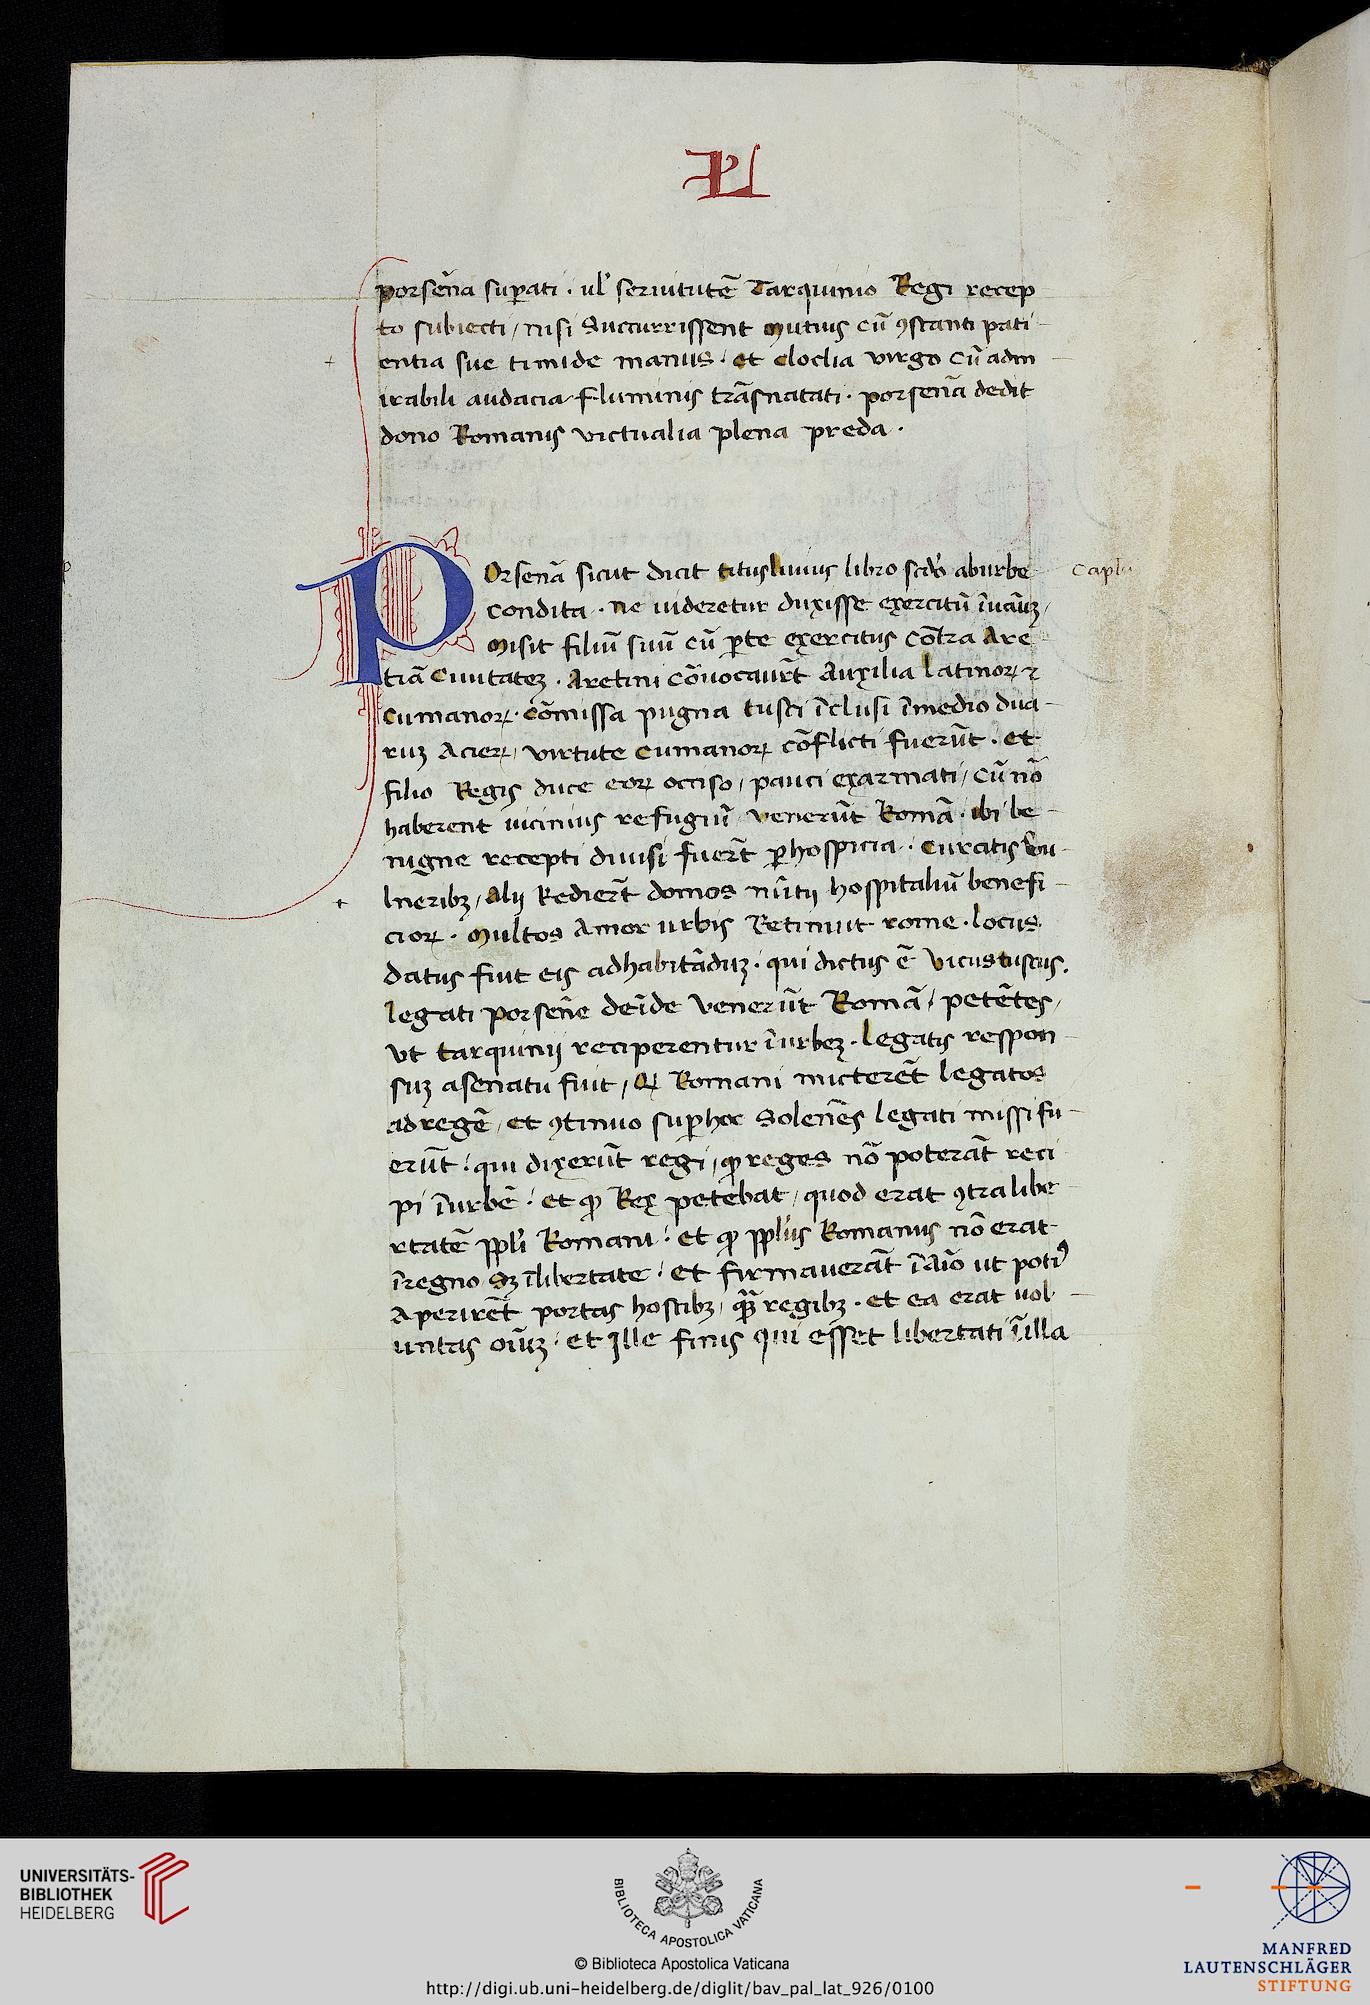 PL
porsēna suꝑati · ul' seruitutē Tarquinio Regi recep
to subiecti / nisi Succurrissent Mutius cū ꝯstanti pati
entia sue timide manus · et Cloelia virgo cū adm
irabili audacia fluminis trāsnatati · porsenā dedit
dono Romanis victualia plena preda ·
Porsenā sicut dicit titusliuius libro scd̄o aburbe
condita · ne uideretur duxisse exercitū
Misit filiū suū cū ꝑte exercitus cōtra Are
tiā Ciuitateꝫ · Aretini cōuocaur̄t Auxilia latinoꝝ ⁊
Cumanoꝝ · Cōmissa pugna tusci īclusi īmedio dua
ruꝫ Acieꝝ / virtute Cumanoꝝ cōflicti fuerūt · et
filio Regis duce eoꝝ occiso / pauci exarmati / cū nō
haberent uicinius refugiū venerūt Romā · ibi be
nigne recepti diuisi fuer̄t ꝑhospicia · Curatis vu
lneribꝫ / Alij Redier̄t domos nūtij hospitaliū benefi
cioꝝ · Multos Amor urbis Retinuit rome · locus
datus fuit eis adhabitāduꝫ · qui dictus ē vicustuscus .
legati porsene deīde venerūt Romā / petētes /
vt tarquinij reciperentur īurbeꝫ · legatis respon
suꝫ asenatu fuit / Romani micterēt legatos
adregē / et ꝯtinuo suꝑhoc Solenēs legati missi fu
erūt · qui dixerūt regi / ꝙ reges nō poterāt reci
pi īurbē · et ꝙ Rex petebat / quod erat ꝯtra libe
rtatē ppl'i Romani · et ꝙ ppl'us Romanus nō erat
īregno sꝫ īlibertate · et firmauerāt īaīo ut potiꝰ
Aperirēt portas hostibꝫ / ꝙ̄ regibꝫ · et ea erat uol
untas oīuꝫ · et Ille finis qui esset libertati īilla
UNIVERSITÄTS-
BIBLIOTHEK
HEIDELBERG
BIBLIOTECA APOSTOLICA VATICANA
© Biblioteca Apostolica Vaticana
http://digi.ub.uni-heidelberg.de/diglit/bav_pal_lat_926/0100
MANFRED
LAUTENSCHLÄGER
STIFTUNG